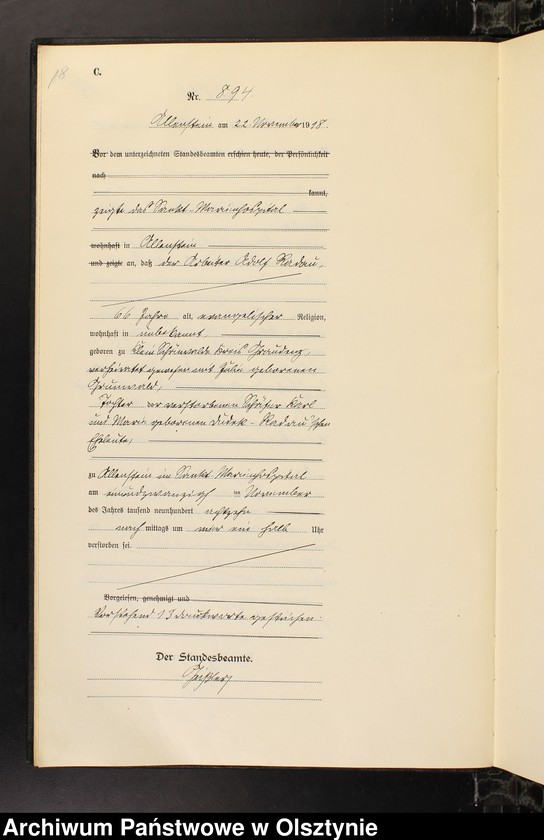 18
C.
Nr. 894
Allenstein am 22 November 1918.
Vor dem unterzeichneten Standesbeamten erschien heute, der Persönlichkeit
nach
kannt,
zeigte das Sankt-Marienhospital
wohnhaft in Allenstein
und zeigte an, daß der Arbeiter Adolf Radau,
66 Jahre alt, evangelischer Religion,
wohnhaft in unbekannt,
geboren zu Klein Schönwalde Kreis Graudenz,
verheiratet gewesen mit Julie geborenen
Grunwald,
Tochter der verstorbenen Schäfer Karl
und Marie geborenen Dudek - Radau'schen
Eheleute,
zu Allenstein im Sankt Marienhospital
am einundzwanzigsten November
des Jahres tausend neunhundert achtzehn
nachmittags um ein halb Uhr
verstorben sei.
Vorgelesen, genehmigt und
Vorstehend 13 Druckworte gestrichen.
Der Standesbeamte.
Archiwum Państwowe w Olsztynie